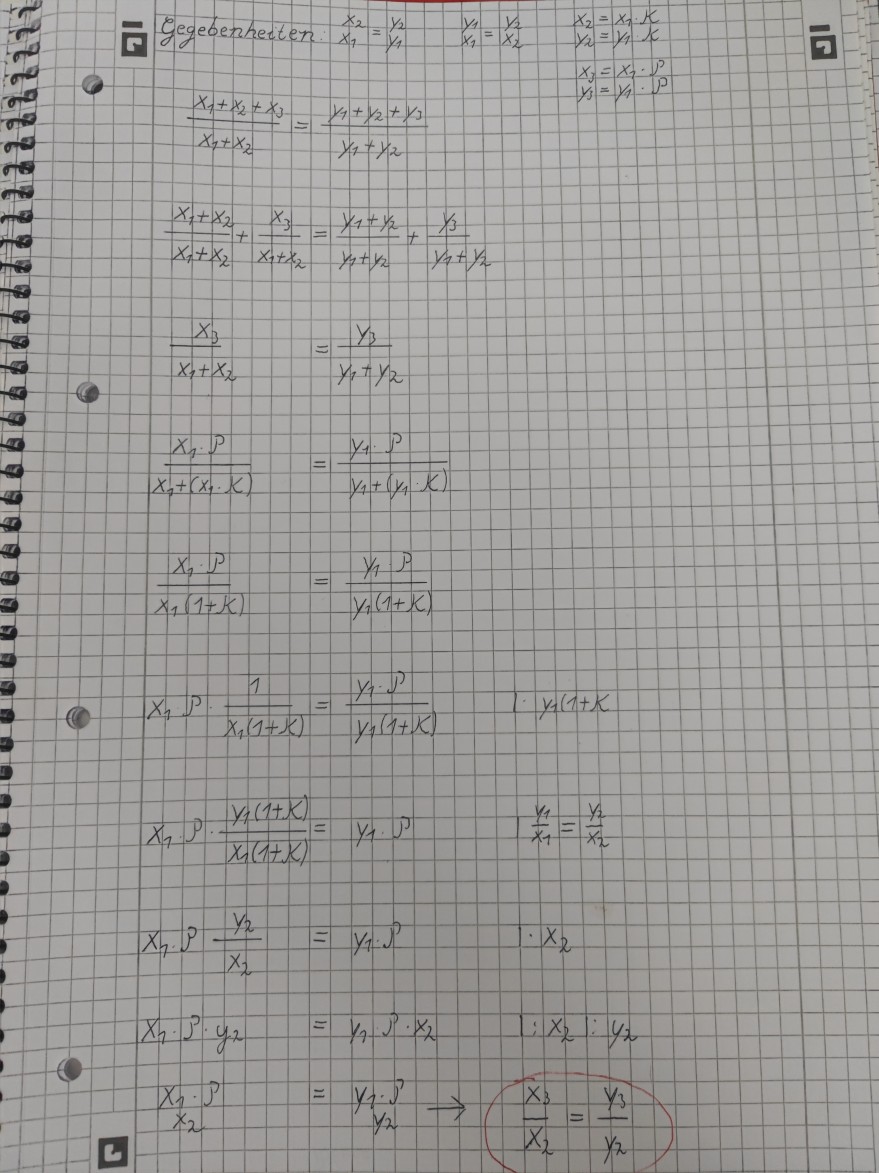 Gegebenheiten: x₂/x₁ = y₂/y₁   y₁/x₁ = y₂/x₂   x₂ = x₁·K
y₂ = y₁·K
x₃ = x₁·P
y₃ = y₁·P
(x₁+x₂+x₃)/(x₁+x₂) = (y₁+y₂+y₃)/(y₁+y₂)
(x₁+x₂)/(x₁+x₂) + x₃/(x₁+x₂) = (y₁+y₂)/(y₁+y₂) + y₃/(y₁+y₂)
x₃/(x₁+x₂) = y₃/(y₁+y₂)
(x₁·P)/(x₁+(x₁·K)) = (y₁·P)/(y₁+(y₁·K))
(x₁·P)/(x₁(1+K)) = (y₁·P)/(y₁(1+K))
x₁·P · 1/(x₁(1+K)) = (y₁·P)/(y₁(1+K))   |· y₁(1+K
x₁·P · (y₁(1+K))/(x₁(1+K)) = y₁·P   | y₁/x₁ = y₂/x₂
x₁·P · y₂/x₂ = y₁·P   |· x₂
x₁·P·y₂ = y₁·P·x₂   |: x₂ |: y₂
(x₁·P)/x₂ = (y₁·P)/y₂ → x₃/x₂ = y₃/y₂